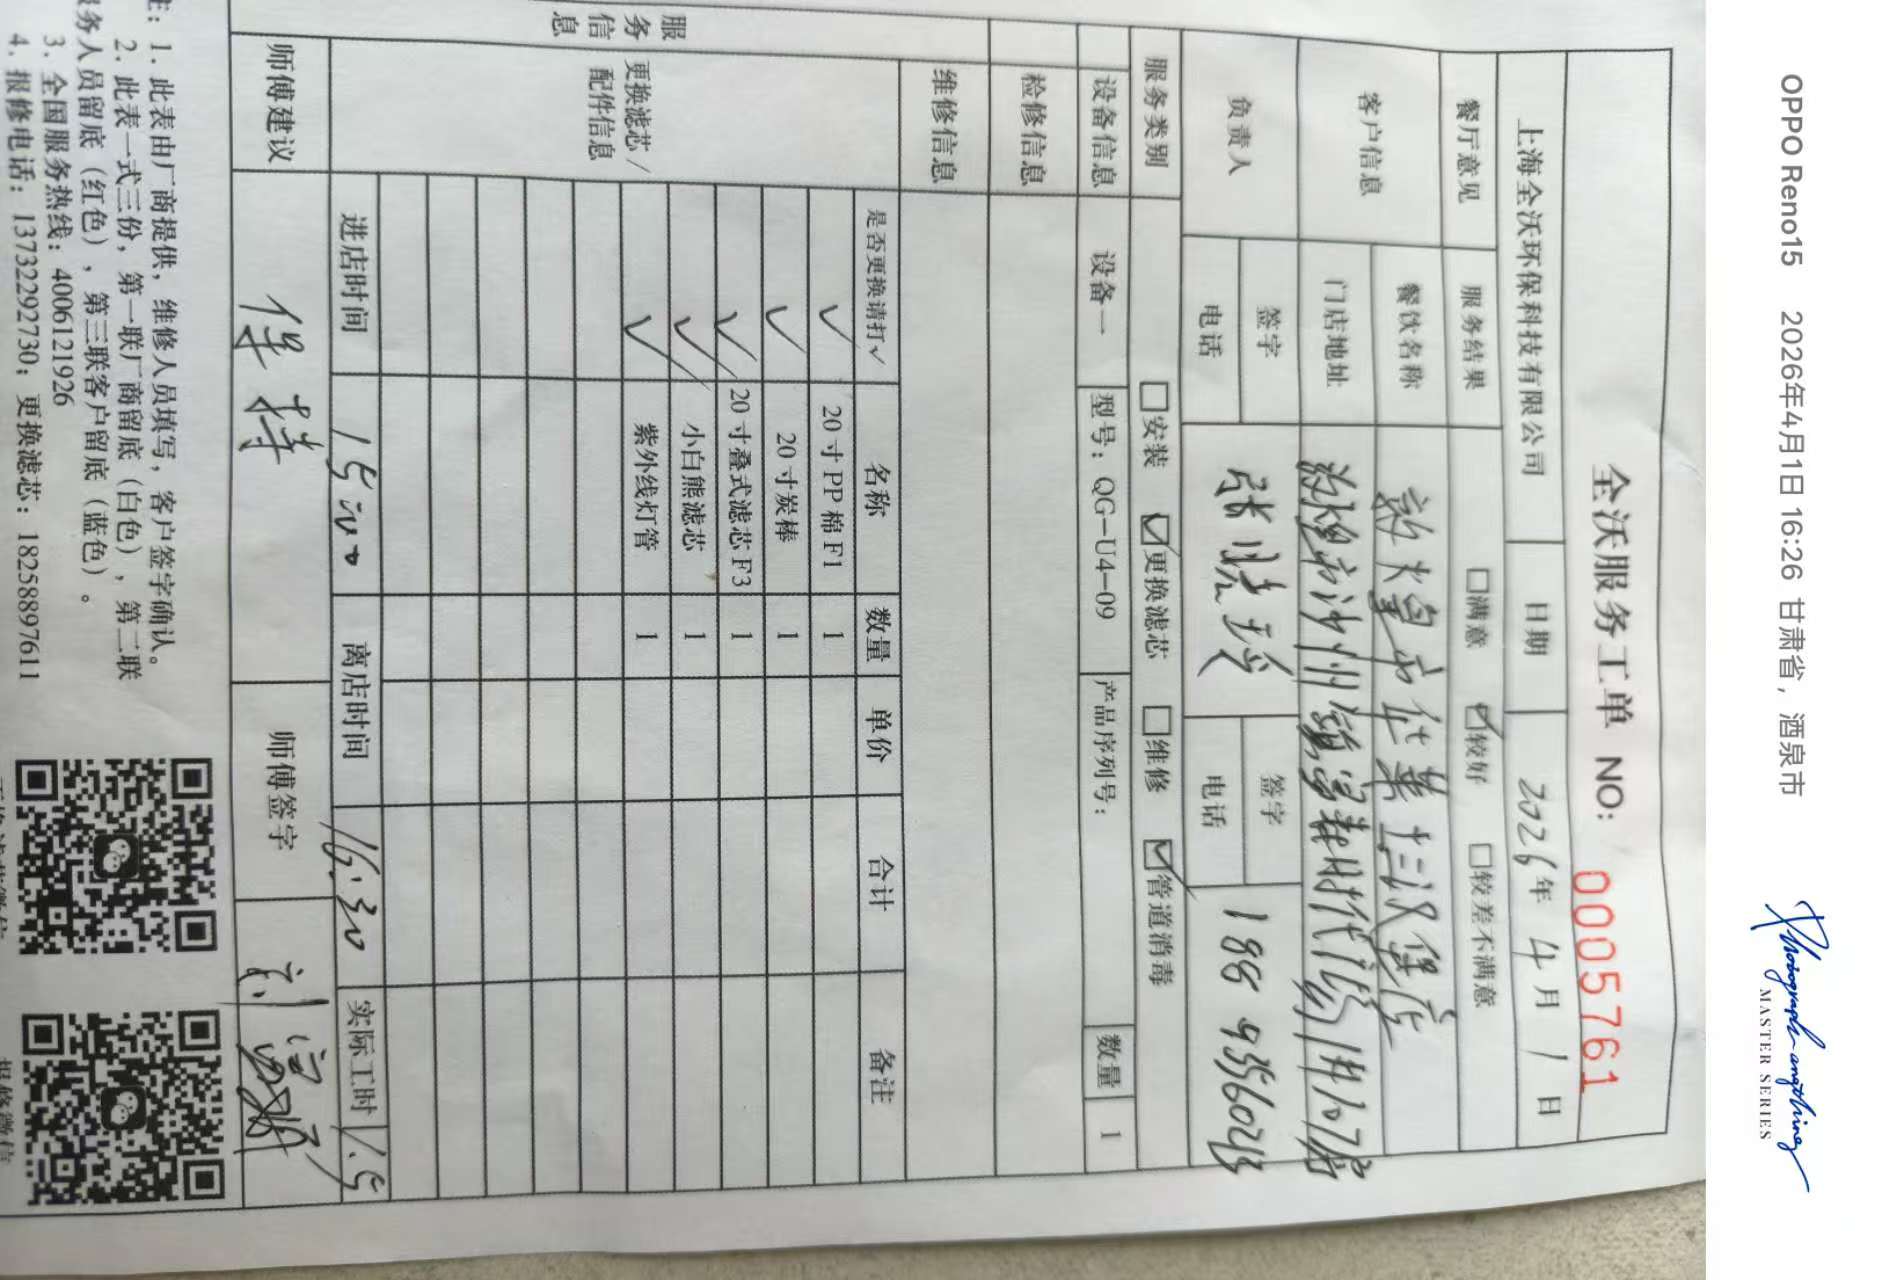 全沃服务工单 NO: 0005761
上海全沃环保科技有限公司 日期 2026年 4月 1日
餐厅意见 服务结果 □满意 ☑较好 □较差不满意
客户信息 餐饮名称 敦煌市华莱士汉堡店
门店地址 敦煌市沙州镇 时代 107
负责人 签字 张 签字
电话 电话 188 93560213
服务类别 □安装 ☑更换滤芯 □维修 ☑管道消毒
设备信息 设备一 型号: QG-U4-09 产品序列号: 数量 1
检修信息
维修信息
服务信息
更换滤芯/配件信息
是否更换请打✓ 名称 数量 单价 合计 备注
✓ 20寸PP棉F1 1
✓ 20寸炭棒 1
✓ 20寸叠式滤芯F3 1
✓ 小白熊滤芯 1
✓ 紫外线灯管 1
进店时间 15:00 离店时间 16:30 实际工时 1.5
师傅建议 保持 师傅签字 刘
注: 1. 此表由厂商提供, 维修人员填写, 客户签字确认。
2. 此表一式三份, 第一联厂商留底 (白色), 第二联
服务人员留底 (红色), 第三联客户留底 (蓝色)。
3. 全国服务热线: 4006121926
4. 报修电话: 13732292730; 更换滤芯: 18258897611
OPPO Reno15 2026年4月1日 16:26 甘肃省, 酒泉市
MASTER SERIES